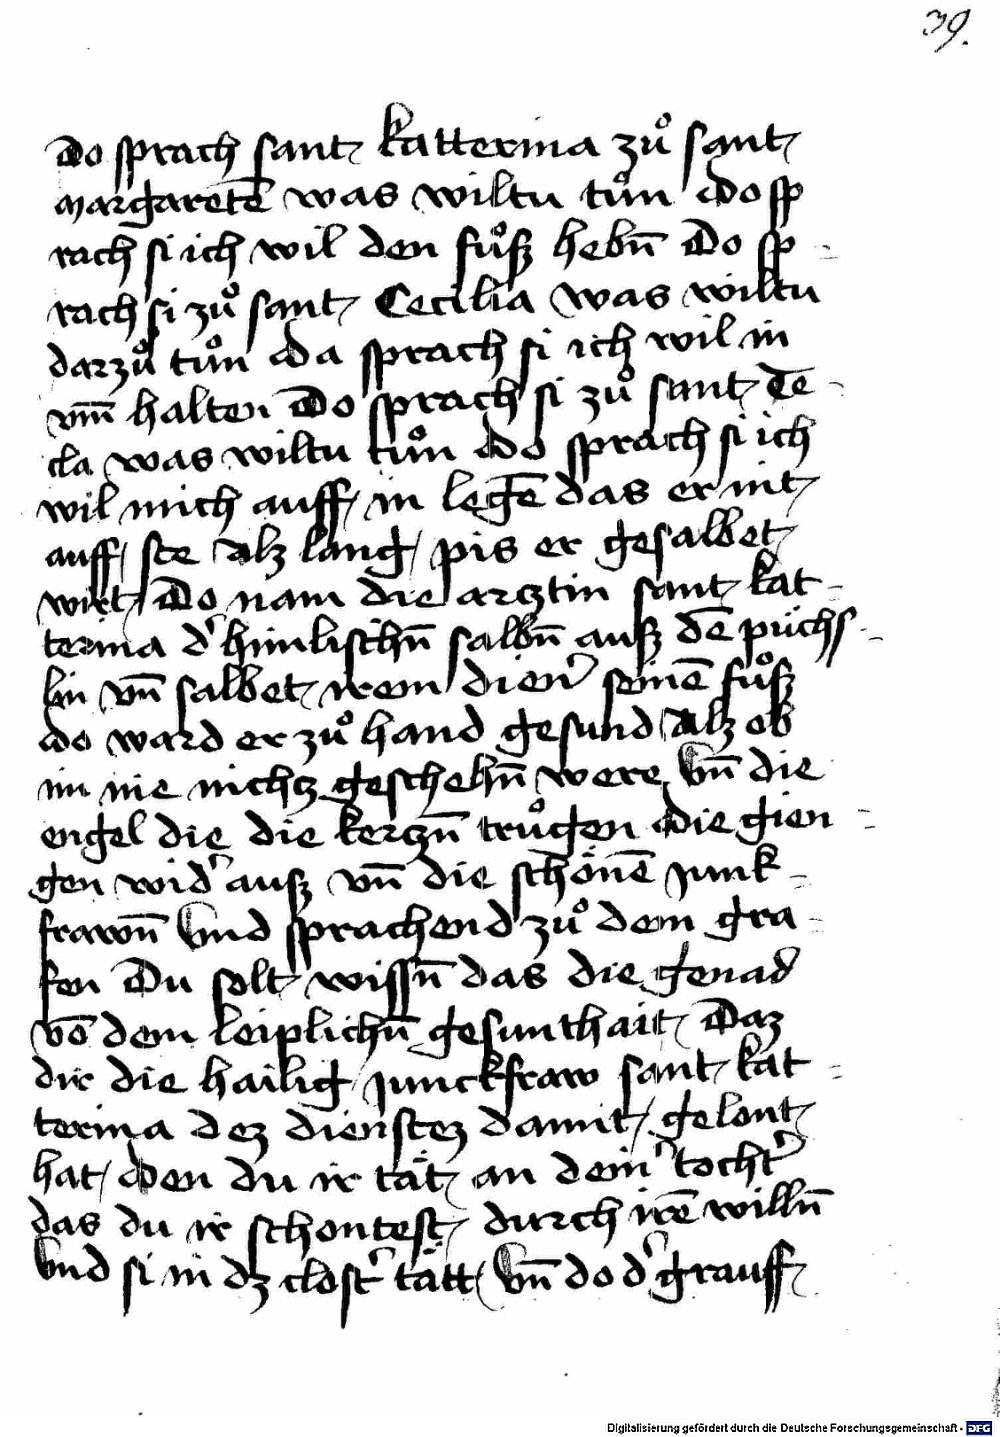 39.
Do sprach sant katterina zuͦ sant
margaretē was wiltu tuͦn do sp
rach si ich wil den fuͦsz hebn̄ Do sp=
rach si zuͦ sant Cecilia was wiltu
darzuͦ tuͦn da sprach si ich wil in
vm̄ halten Do sprach si zuͦ sant Te=
cla was wiltu tuͦn do sprach si ich
wil mich auff in legē das er nit
auff ste alz lang pis er gesalbet
wirt Do nam die arztin sant kat=
terina dˀ himlischn̄ salbn̄ ausz dē puchs=
lin vn̄ salbet irem dienˀ seinē fuͦsz
do ward er zuͦ hand gesund alz ob
im nie nichtz geschehn̄ were vn̄ die
engel die die kerczn̄ truͦgen die gien=
gen widˀ ausz vn̄ die schönē junk=
frawn̄ vnd sprachend zuͦ dem gra=
fen Du solt wissn̄ das die genad
vō dem leiplichn̄ gesunthait Daz
dir die hailig junckfraw sant kat=
terina dez dienstez damit gelont
hat den du ir tät an deinˀ tochtˀ
das du ir schontest durch irē willn̄
vnd si in dz clostˀ tätt vn̄ do dˀ grauff
Digitalisierung gefördert durch die Deutsche Forschungsgemeinschaft - DFG